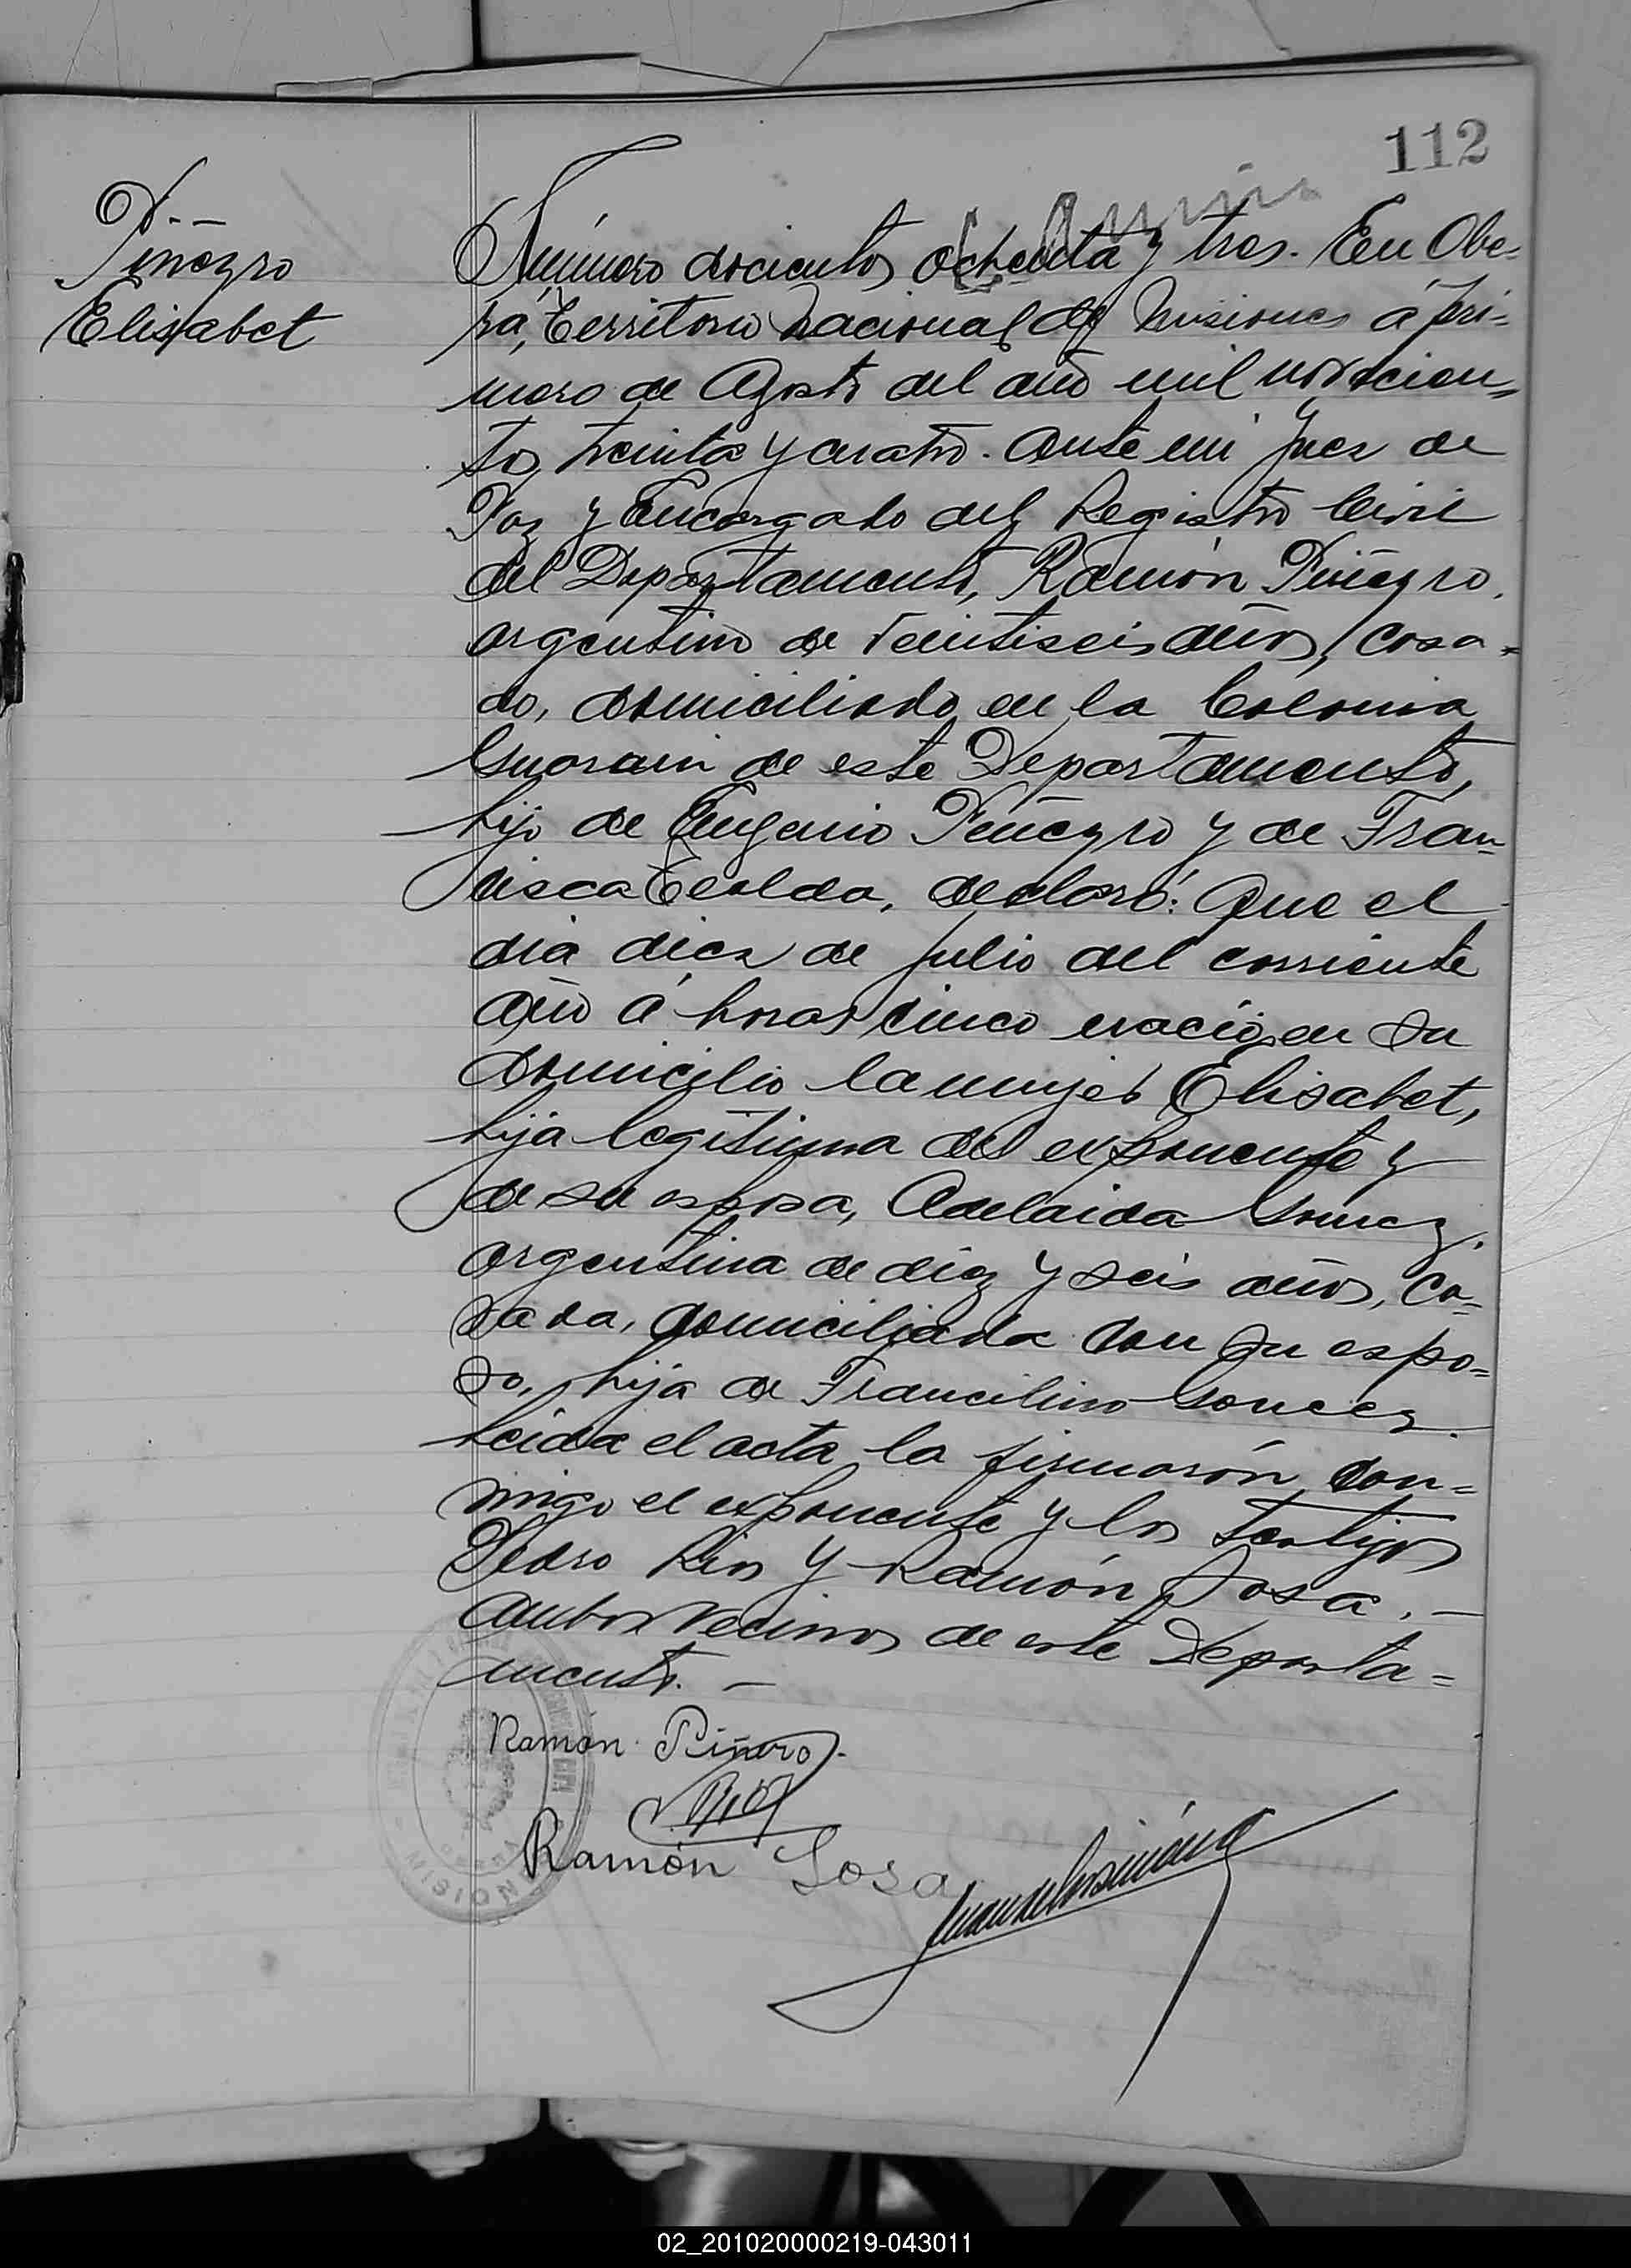 112
N.-
Piñeyro
Elisabet
Número docientos ochenta y tres. En Obe-
rá, Territorio Nacional de Misiones á pri-
mero de Agosto del año mil novecien-
tos treinta y cuatro. Ante mi Juez de
Paz y Encargado del Registro Civil
del Departamento, Ramón Piñeyro,
argentino de veintiseis años, casa-
do, domiciliado en la Colonia
Guarani de este Departamento,
hijo de Eugenio Piñeyro y de Fran-
cisca declaró: Que el
dia diez de julio del corriente
año á horas cinco nació en su
domicilio la mujer Elisabet,
hija legitima del exponente y
de su esposa, Adelaida Gomez,
argentina de diez y seis años, ca-
sada, domiciliada con su espo-
so, hija de Francilino Gomez.
Leida el acta la firmarón con-
migo el exponente y los testigos
Pedro Rios y Ramón Sosa. -
ambos vecinos de este Departa-
mento. -
Ramón Piñero.
Rios
Ramón Sosa
MISIONES
02_201020000219-043011